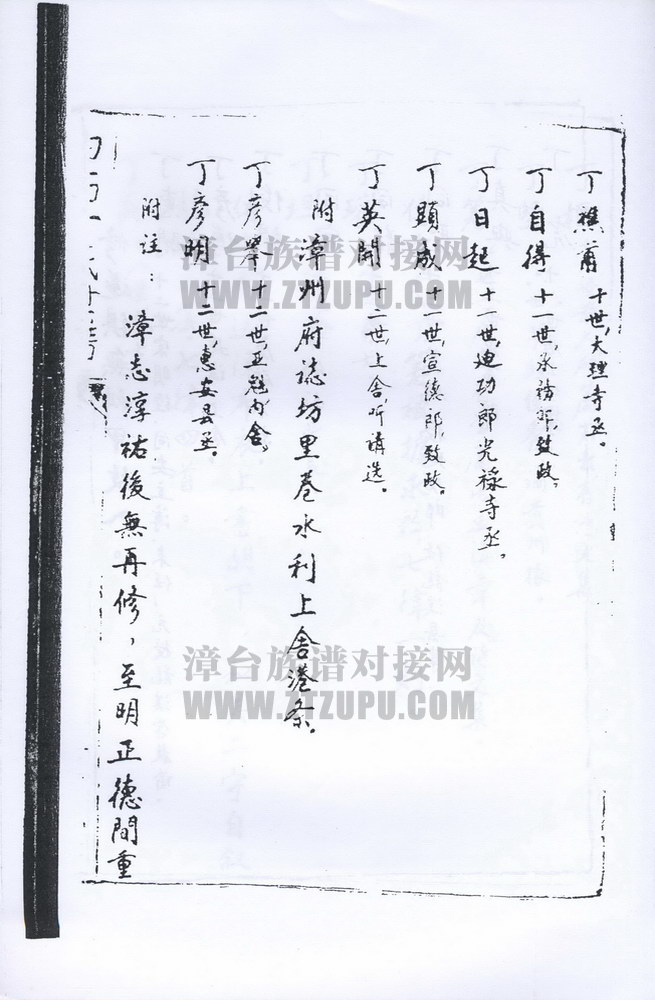 丁樵甫 十世,大理寺丞。
丁自得 十一世,承務郎,致政。
丁日起 十一世,迪功郎光祿寺丞。
丁顕咸 十一世,宣德郎,致政。
丁英開 十二世,上舍,听請选。
附漳州府誌坊里卷水利上舍港条。
丁彦舉 十二世,亚魁內舍。
丁彦明 十二世,惠安县丞。
附注：
漳志淳祐後無再修，至明正德間重
漳台族谱对接网
WWW.ZTZUPU.COM
漳台族谱对接网
WWW.ZTZUPU.COM